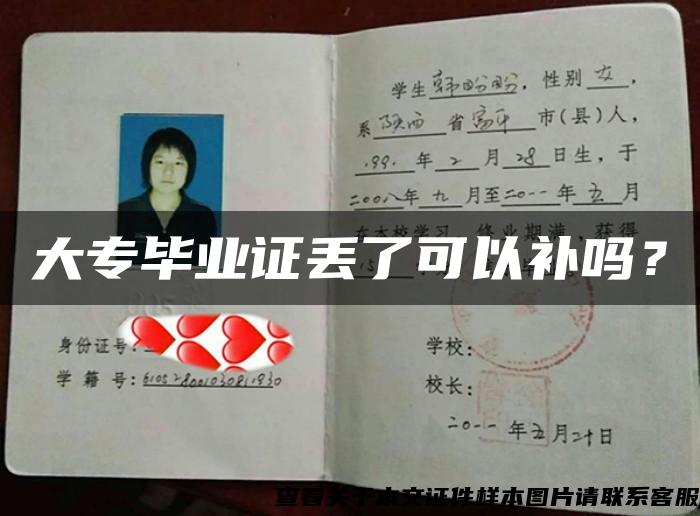 学生韩盼盼，性别女，
系陕西省富平市(县)人，
1991年2月28日生，于
二00八年九月至二0一一年五月
在本校学习，终业期满，获得
大专毕业证丢了可以补吗？
15
身份证号：
学籍号：610528001030811930
学校：
校长：
二0一一年五月二十日
查看关于本文证件样本图片请联系客服